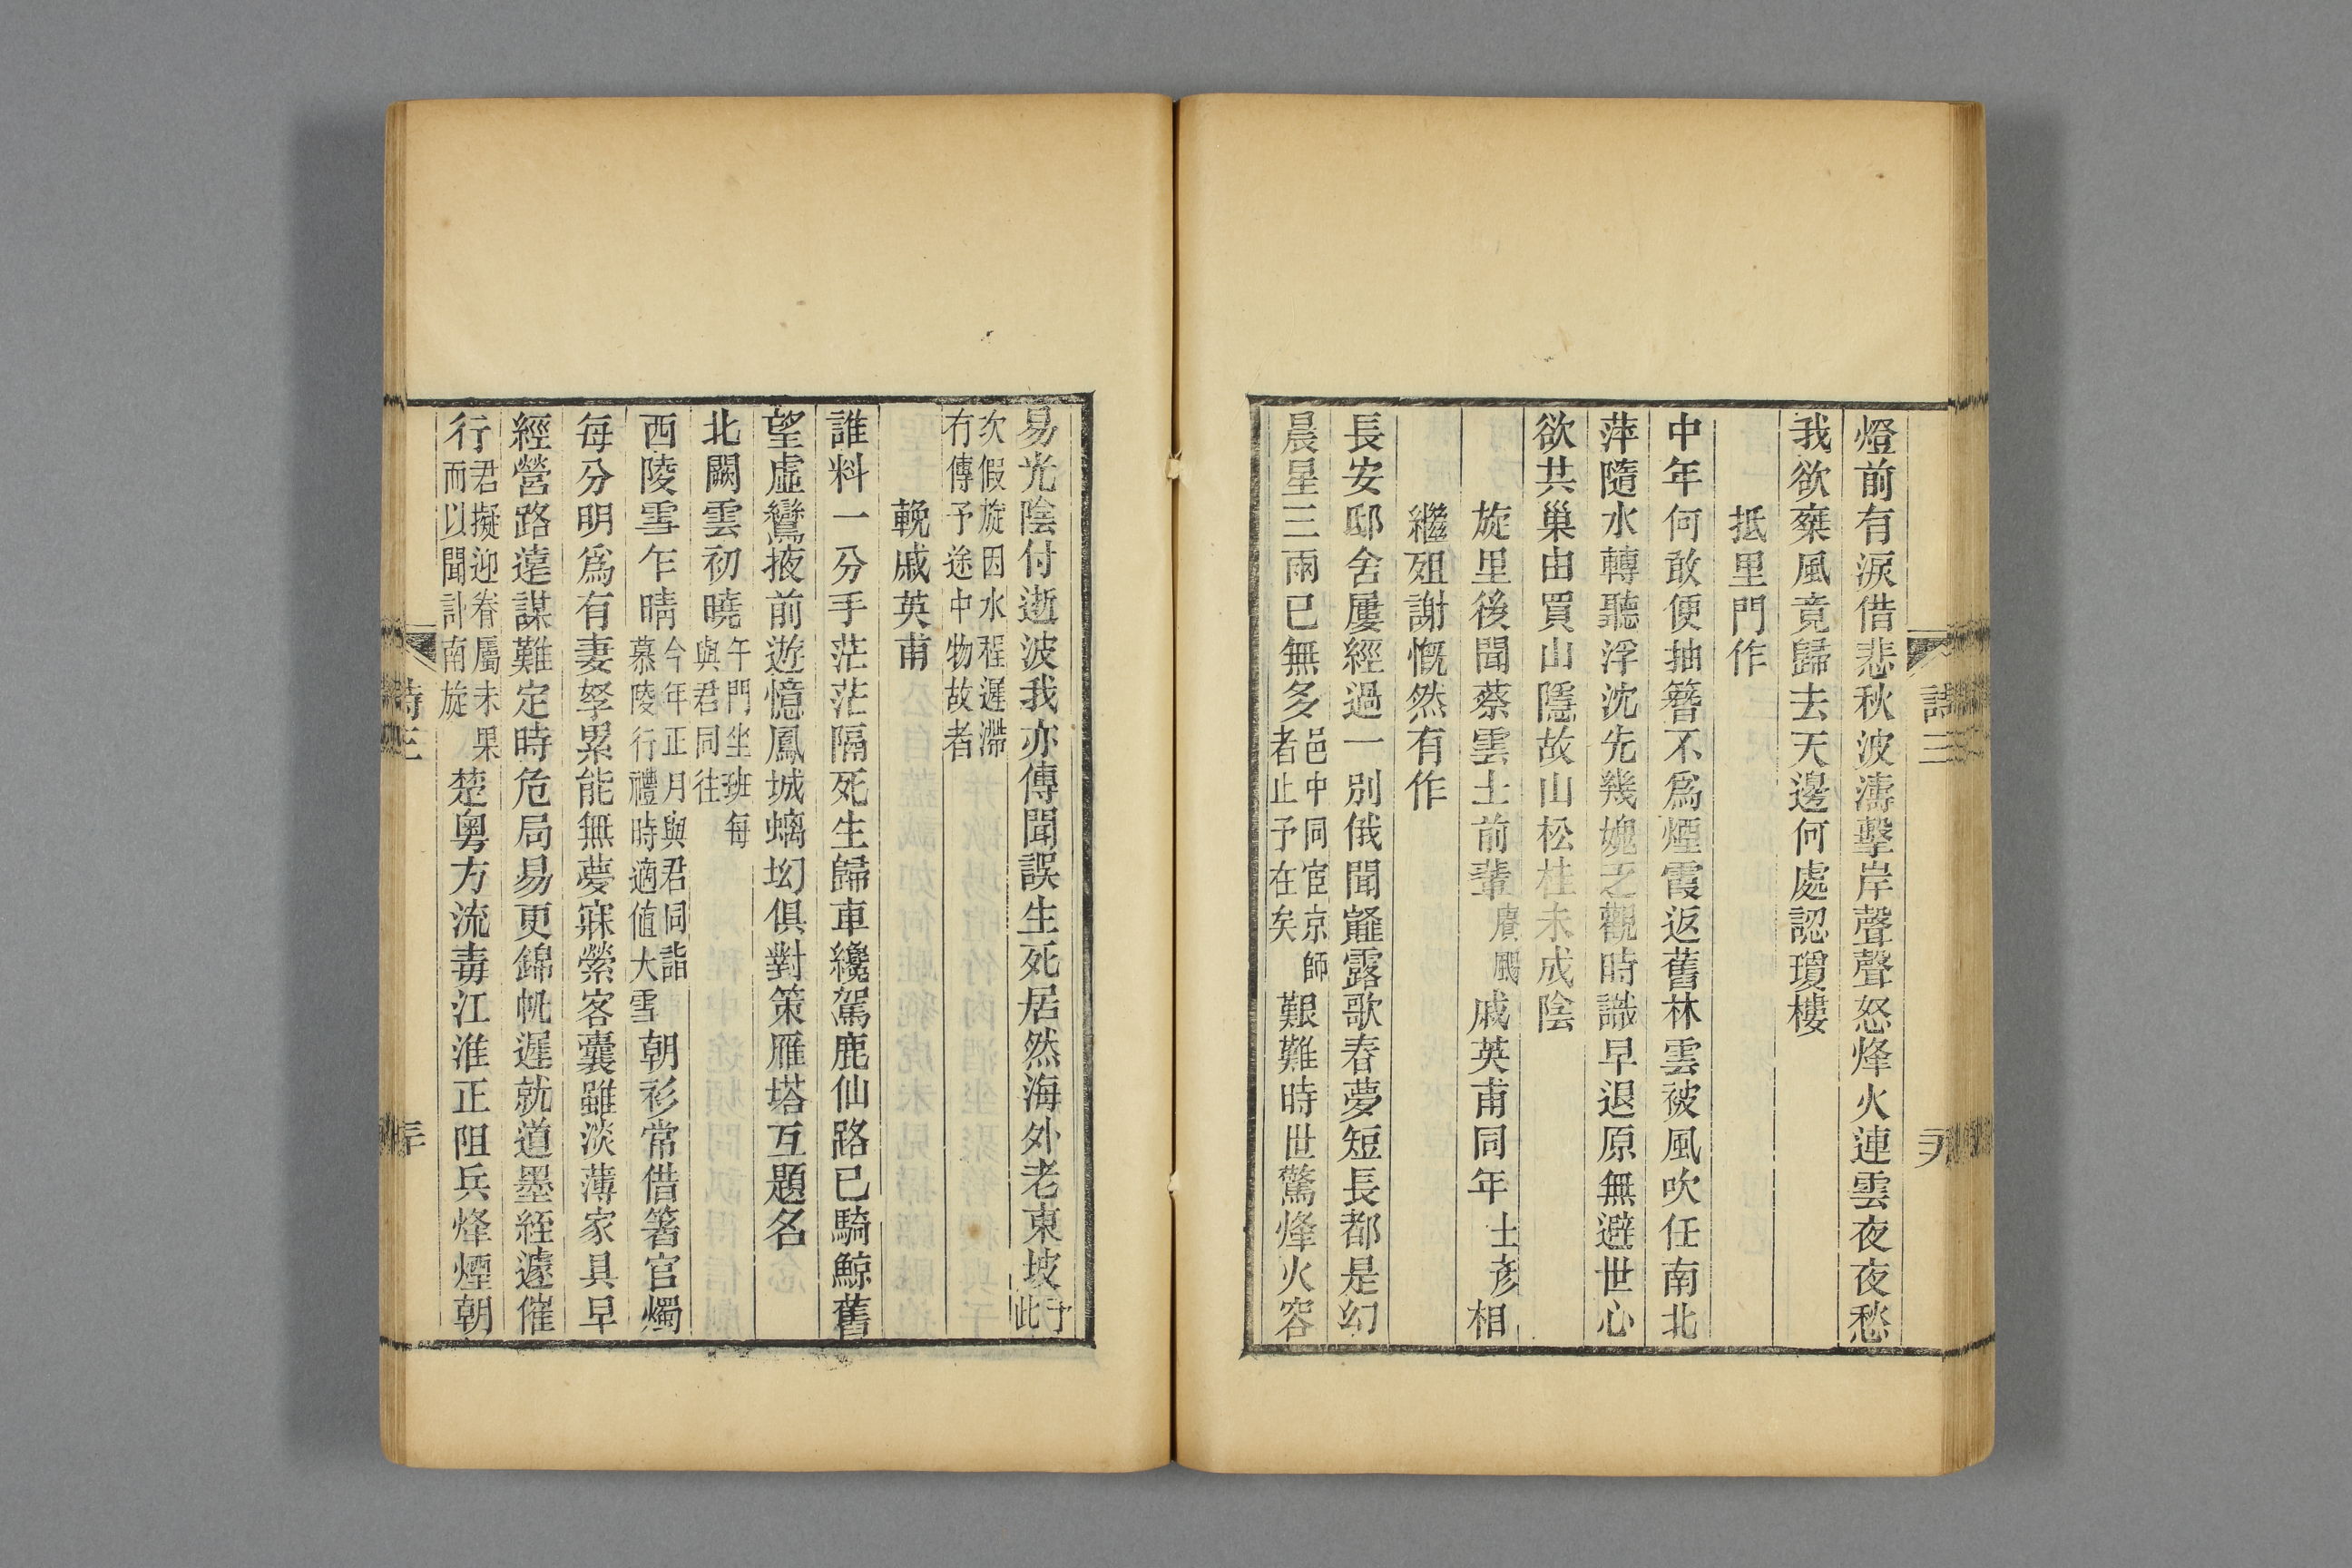 燈前有淚借悲秋波濤擊岸聲聲怒烽火連雲夜夜愁
我欲棄風竟歸去天邊何處認瓊樓
抵里門作
中年何敢便抽簪不為煙霞返舊林雲被風吹任南北
萍隨水轉聽浮沈先幾媿乏觀時識早退原無避世心
欲共巢由買山隱故山松桂未成陰
旋里後聞蔡雲士前輩賡颺戚英甫同年士彥相
繼殂謝慨然有作
長安邸舍屢經過一別俄聞薤露歌春夢短長都是幻
晨星三兩已無多邑中同宦京師者止予在矣艱難時世驚烽火容
易光陰付逝波我亦傳聞誤生死居然海外老東坡予此
次假旋因水程遲滯有傳予途中物故者
輓戚英甫
誰料一分手茫茫隔死生歸車纔駕鹿仙路已騎鯨舊
望虛鸞掖前遊憶鳳城螭㘭俱對策雁塔互題名
北闕雲初曉午門坐班每與君同往
西陵雪乍晴今年正月與君同詣慕陵行禮時適值大雪朝衫常借箸官燭
每分明為有妻孥累能無夢寐縈客囊雖淡薄家具早
經營路遠謀難定時危局易更錦帆遲就道墨絰遽催
行君擬迎眷屬未果而以聞訃南旋楚粵方流毒江淮正阻兵烽煙朝